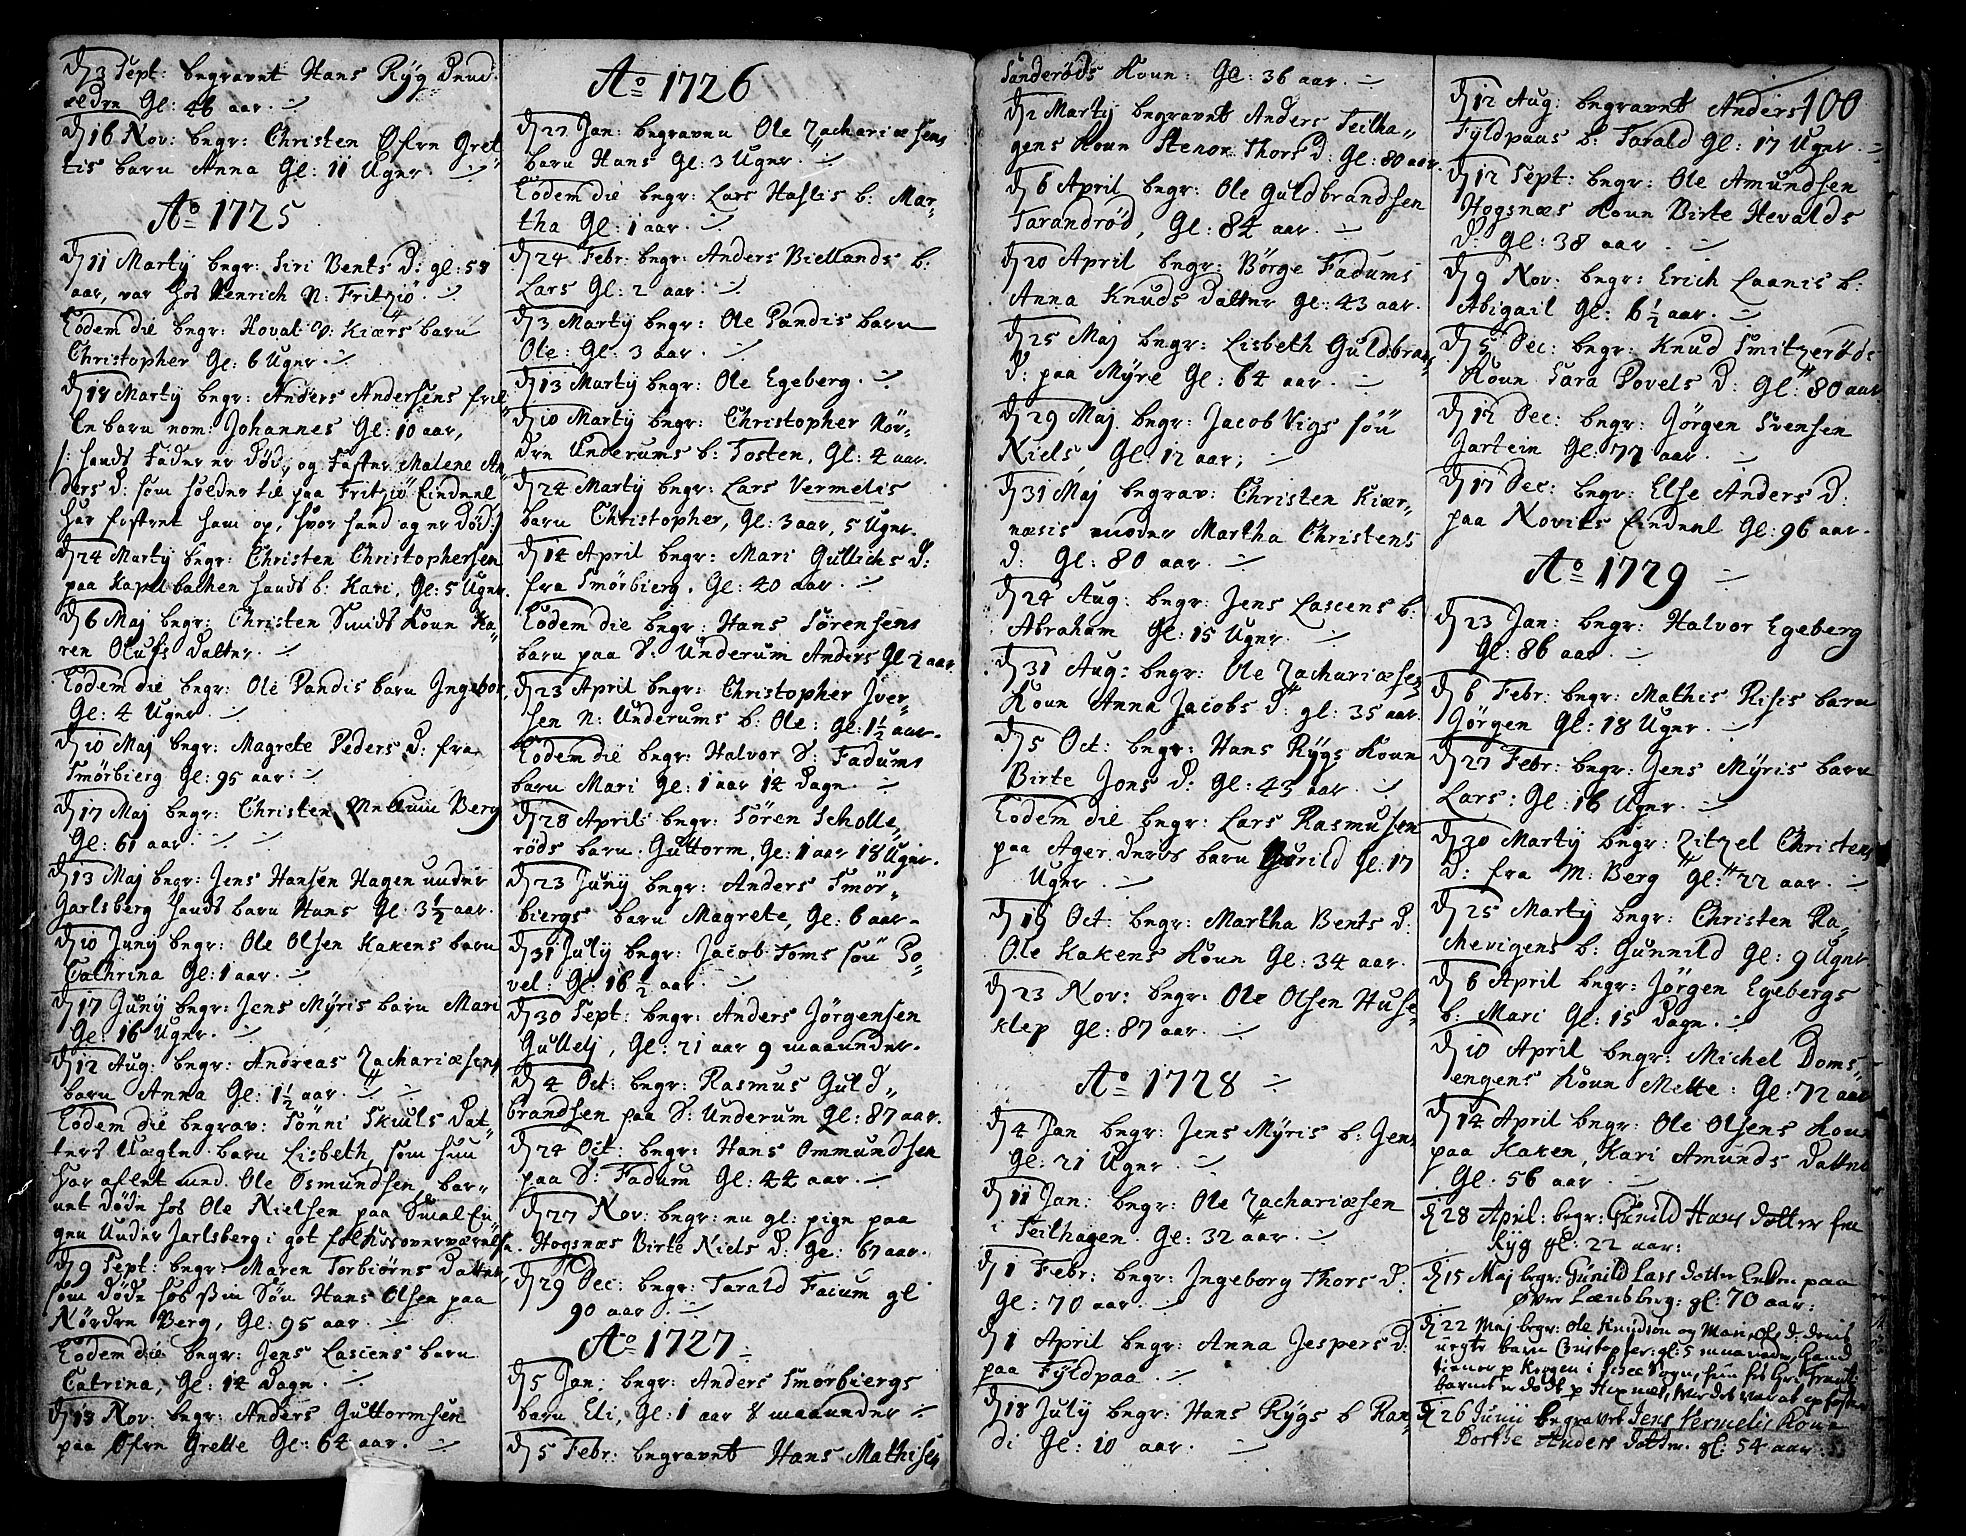 d 3 Sept: begravet Hans Ryg
Gl: 46 aar.
d 16 Nov: begr: Christen Øfre Gret
tis barn Anna Gl: 11 Uger.
Ao 1725
d 11 Marty begr: Siri Bents D: gl: 58
aar, var hos Henrich N: Fritzjö.
Eodem die begr: Hoval Kiærs barn
Christopher Gl: 6 Uger.
d 18 Marty begr: Anders Andersens
barn nom: Johannes Gl: 10 aar,
hands Fader er Död, og Faster Malene An
ders D: som holder til paa Fritzjö Eindeel
har fostret ham op, hvor hand og er Död.
d 24 Marty begr: Christen Christophersen
paa Kapelbakken hands b: Kari, Gl: 5 Uger.
d 6 Maj begr: Christen Smids Koun Ka,,
ren Olufs Datter.
Eodem die begr: Ole Pandis barn Ingebor,
Gl: 4 Uger.
d 10 Maj begr: Magrete Peders D: fra
Smörbierg Gl: 95 aar.
d 17 Maj begr: Christen Mellum Berg
Gl: 61 aar.
d 13 Maj begr: Jens Hansen Hagen under
Jarlsberg hands barn Hans Gl: 3½ aar.
d 10 Juny begr: Ole Olsen Kakens barn
Cathrina Gl: 1 aar.
d 17 Juny begr: Jens Myris barn Mari
Gl: 16 Uger.
d 12 Aug: begr: Andreas Zachariæsens
barn Anna Gl: 1½ aar.
Eodem die begrav: Tönni Skuuls Dat,,
ters Uægte barn Lisbeth, som hun
har aflet med Ole Osmundsen, bar,,
net döde hos Ole Nielsen paa Smal En
gen Under Jarlsberg i got folkes overværelse.
d 9 Sept: begr: Maren Torbiörns Datter
som döde hos sin Sön Hans Olsen paa
Nördre Berg, Gl: 95 aar.
Eodem die begr: Jens Lasens barn
Catrina, Gl: 14 Dage.
d 18 Nov: begr: Anders Guttormsen
paa Øfre Grette Gl: 64 aar.
Ao 1726
d 27 Jan: begraven Ole Zachariæsens
barn Hans Gl: 3 Uger.
Eodem die begr: Lars Haslis b: Mar,,
tha Gl: 1 aar.
d 24 Febr: begr: Anders Biellands b:
Lars Gl: 2 aar.
d 3 Marty begr: Ole Pandis barn
Ole: Gl: 3 aar.
d 13 Marty begr: Ole Egeberg.
d 10 Marty begr: Christopher Nör,,
dre Underums b: Tosten, Gl: 4 aar.
d 24 Marty begr: Lars Vermelis
barn Christopher, Gl: 3 aar, 5 Uger.
d 14 April begr: Mari Gullichs D:
fra Smörbierg, Gl: 40 aar.
Eodem die begr: Hans Sörensens
barn paa S: Underum Anders Gl 2 aar
d 23 April begr: Christopher Iver,,
sen N: Underums b: Ole: Gl: 1½ aar.
Eodem die begr: Halvor S: Fadums
barn Mari Gl: 1 aar 14 Dage.
d 28 April begr: Sören Scholle,,
röds barn Guttorm, Gl: 1 aar 18 Uger.
d 23 Juny begr: Anders Smör,,
biergs barn Magrete, Gl: 6 aar.
d 31 July begr: Jacob Toms sön Po,,
vel: Gl: 16½ aar.
d 30 Sept: begr: Anders Jörgensen
Gullelj, Gl: 21 aar 9 maaneder.
d 4 Oct: begr: Rasmus Guld,,
brandsen paa S: Underum Gl: 87 aar.
d 24 Oct: begr: Hans Ommundsen
paa S: Fadum Gl: 44 aar.
d 27 Nov: begr: en gl: pige paa
Hogsnæs Birte Niels D: Gl: 67 aar.
d 29 Dec: begr: Tarald Facium gl
90 aar
Ao 1727
d 5 Jan: begr: Anders Smörbiergs
barn Eli, Gl: 1 aar 8 maaneder
d 5 Febr: begravet Hans Mathisen
Sanderöds Koun: Gl: 36 aar.
d 2 Marty begravet Anders Teilha,,
gens Koun Stenor Thors D: Gl: 80 aar.
d 6 April begr: Ole Guldbrandsen
Tarandröd, Gl: 84 aar.
d 20 April begr: Börge Fadums
Anna Knuds Datter Gl: 43 aar.
d 25 Maj begr: Lisbeth Guldbran,,
D: paa Myre Gl: 64 aar.
d 29 Maj begr: Jacob Vigs sön
Niels, Gl: 12 aar;
d 31 Maj begrav: Christen Kiær,,
næsis moder Martha Christens
D: Gl: 80 aar.
d 24 Aug: begr: Jens Lascens b:
Abraham Gl: 15 Uger.
d 31 Aug: begr: Ole Zachariæsens
Koun Anna Jacobs D: gl: 35 aar.
d 5 Oct: begr: Hans Rygs Koun
Birte Jons D: Gl: 43 aar.
Eodem die begr: Lars Rasmusen
paa Ager deres barn Gurild Gl: 17
Uger.
d 19 Oct: begr: Martha Bents D:
Ole Kakens Koun Gl: 34 aar.
d 23 Nov: begr: Ole Olsen Huse,,
klep Gl: 87 aar.
Ao 1728
d 4 Jan begr: Jens Myris b: Jens
Gl: 21 Uger.
d 11 Jan: begr: Ole Zachariæsen
i Teilhagen. Gl: 32 aar.
d 1 Febr: begr: Ingeborg Thors D.
Gl: 70 aar.
d 1 April begr: Anna Jespers D:
paa Fyldpaa.
d 18 July begr: Hans Rygs b Ran,,
di Gl: 10 aar.
100
d 12 Aug: begravet Anders
Fyldpaas b: Tarald Gl: 17 Uger.
d 12 Sept: begr: Ole Amundsen
Hogsnæs Koun Birte Hevalds
D: gl: 38 aar
d 9 Nov: begr: Erich Laanis b:
Abigail Gl: 6½ aar.
d 5 Dec: begr: Knud Smitzeröds
Koun Sara Povels D: Gl: 80 aar.
d 12 Dec: begr: Jörgen Svensen
Jartein Gl: 77 aar.
d 17 Dec: begr: Else Anders D:
paa Novits Eindeel Gl: 96 aar.
Ao 1729
d 23 Jan: begr: Halvor Egeberg
Gl: 86 aar.
d 6 Febr: begr: Mathis Risis barn
Jörgen Gl: 18 Uger.
d 27 Febr: begr: Jens Myris barn
Lars: Gl: 16 Uger.
d 30 Marty begr: Zitzel Christens
D: fra M: Berg Gl: 22 aar.
d 25 Marty begr: Christen Ra,,
chevigens b: Gunnild Gl: 9 Uger
d 6 April begr: Jörgen Egebergs
b: Mari Gl: 15 Dage.
d 10 April begr: Michel Doms,,
engens Koun Mette: Gl: 72 aar
d 14 April begr: Ole Olsens Koun
paa Kaken, Kari Amunds Datter
Gl: 56 aar
d 28 April: begr: Gunild Hans dotter fra
Ryg gl: 22 aar:
d 15 Maj begr: Gunild Lars dotter Enken paa
Øvre Lænsberg: gl: 70 aar:
d 22 Maj begr: Ole Knudsen og Mari Ols d: deris
uegte barn Christopher: gl: 5 maaneder, hand
tiener p Krogen i Sogn, hun
barnet er dödt p
d 26 Junii begravet Jens Vermelis Kone
Dorthe Anders dotter. gl: 54 aar